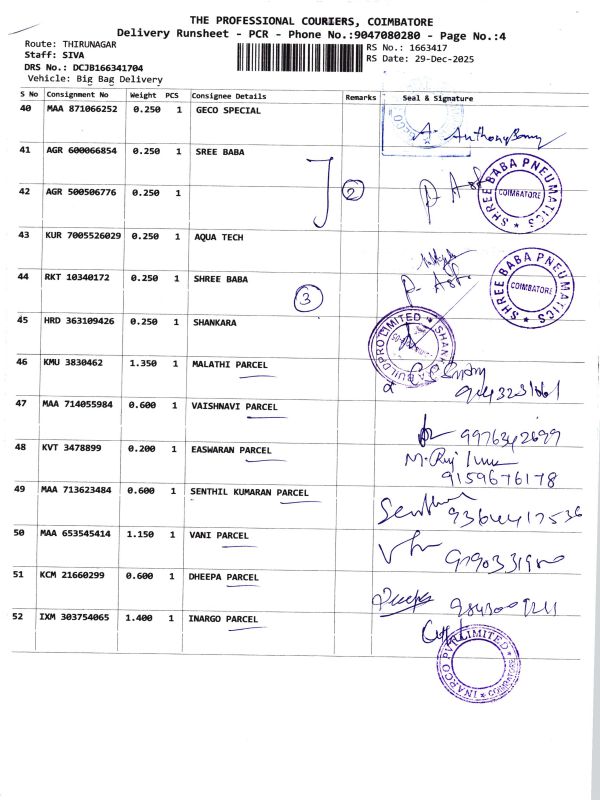 THE PROFESSIONAL COURIERS, COIMBATORE
Delivery Runsheet - PCR - Phone No.:9047080280 - Page No.:4
Route: THIRUNAGAR
Staff: SIVA
DRS No.: DCJB166341704
Vehicle: Big Bag Delivery
RS No.: 1663417
RS Date: 29-Dec-2025
S No Consignment No Weight PCS Consignee Details Remarks Seal & Signature
40 MAA 871066252 0.250 1 GECO SPECIAL
A. Anthony
41 AGR 600066854 0.250 1 SREE BABA
SHREE BABA PNEUMATICS COIMBATORE
42 AGR 500506776 0.250 1
2
43 KUR 7005526029 0.250 1 AQUA TECH
44 RKT 10340172 0.250 1 SHREE BABA
SHREE BABA PNEUMATICS COIMBATORE
3
45 HRD 363109426 0.250 1 SHANKARA
SHANKARA BUILDPRO LIMITED
46 KMU 3830462 1.350 1 MALATHI PARCEL
47 MAA 714055984 0.600 1 VAISHNAVI PARCEL
9976342699
48 KVT 3478899 0.200 1 EASWARAN PARCEL
9159676178
49 MAA 713623484 0.600 1 SENTHIL KUMARAN PARCEL
Senthil
50 MAA 653545414 1.150 1 VANI PARCEL
51 KCM 21660299 0.600 1 DHEEPA PARCEL
Deepa
52 IXM 303754065 1.400 1 INARGO PARCEL
INARCO PVT LIMITED COIMBATORE